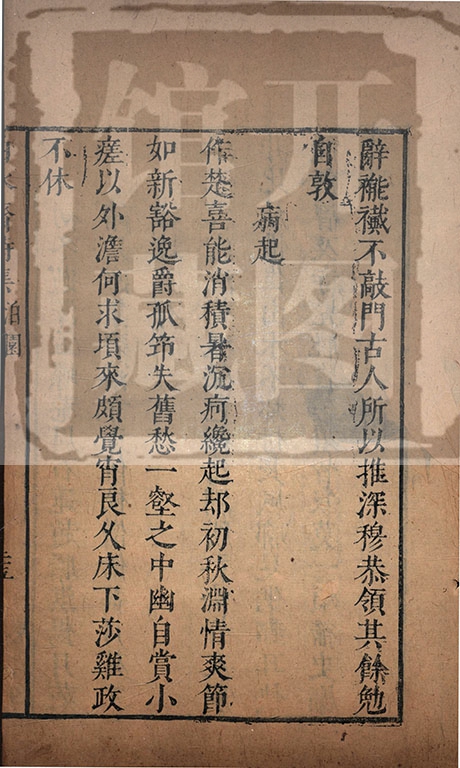 辭褦襶不敲門古人所以推深穆恭領其餘勉
自敦
病起
作楚喜能消積暑沉疴纔起却初秋淵情爽節
如新豁逸爵孤笻失舊愁一壑之中幽自賞小
瘥以外澹何求頃來頗覺宵良久床下莎雞政
不休